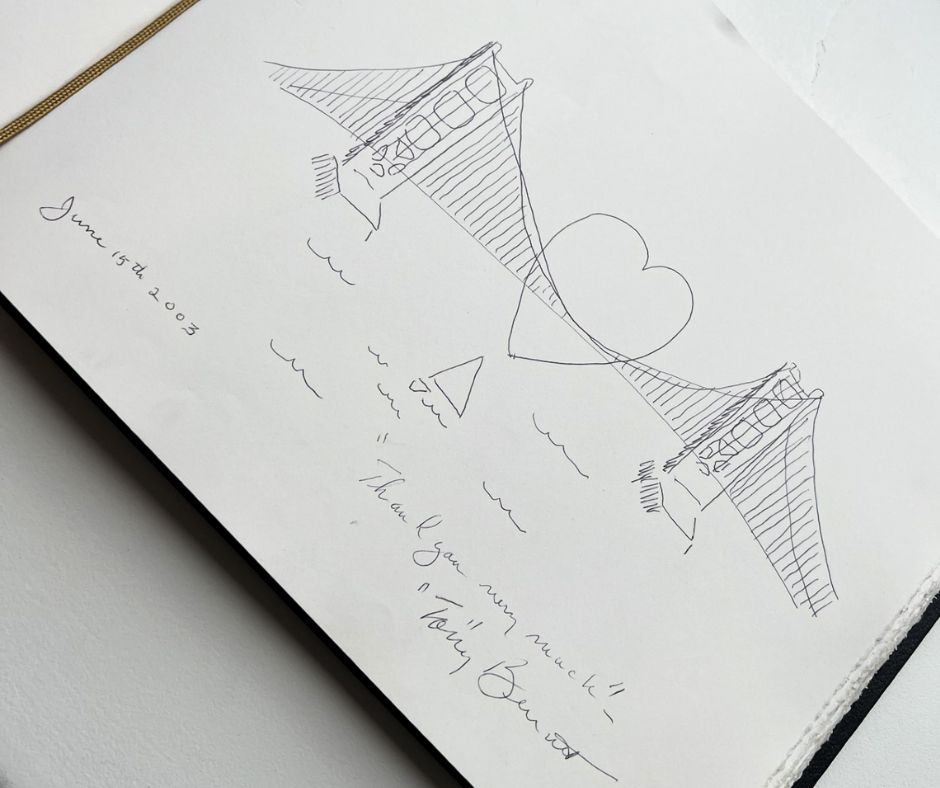 June 15th 2003
"Thank you very much"
"Tony" Bennett